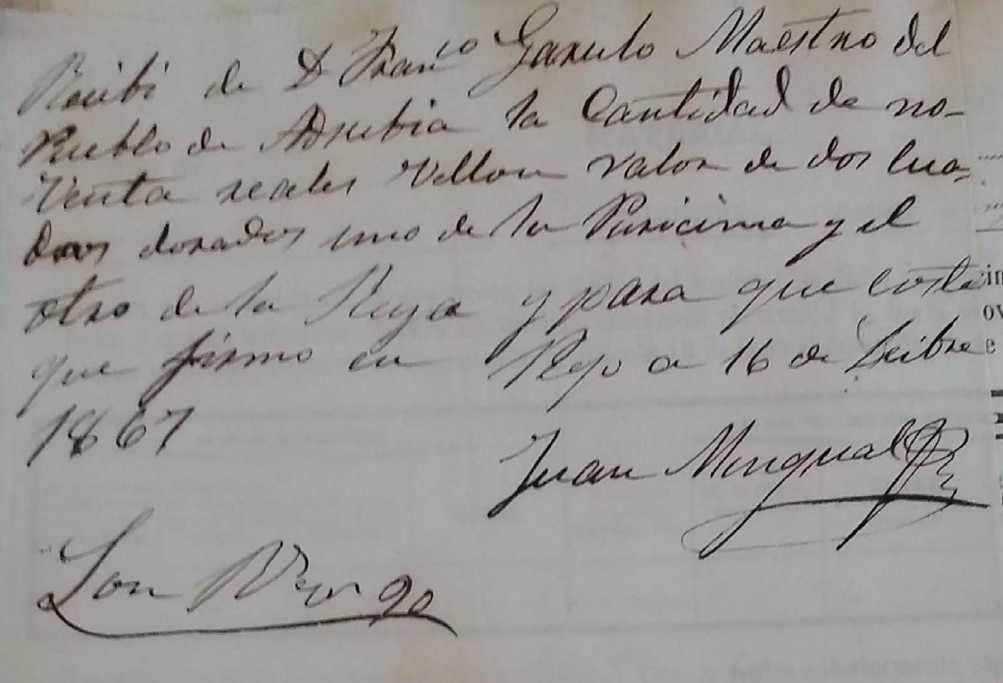 Recibi de D Fran^co Garulo Maestro del
Pueblo de Adsubia la Cantidad de no-
venta reales Vellon valor de dos cua-
dros dorados uno de la Puricima y el
otro de la Reyna y para que coste
que firmo en Pego a 16 de
1867
Juan Mengual
Son Rvon 90